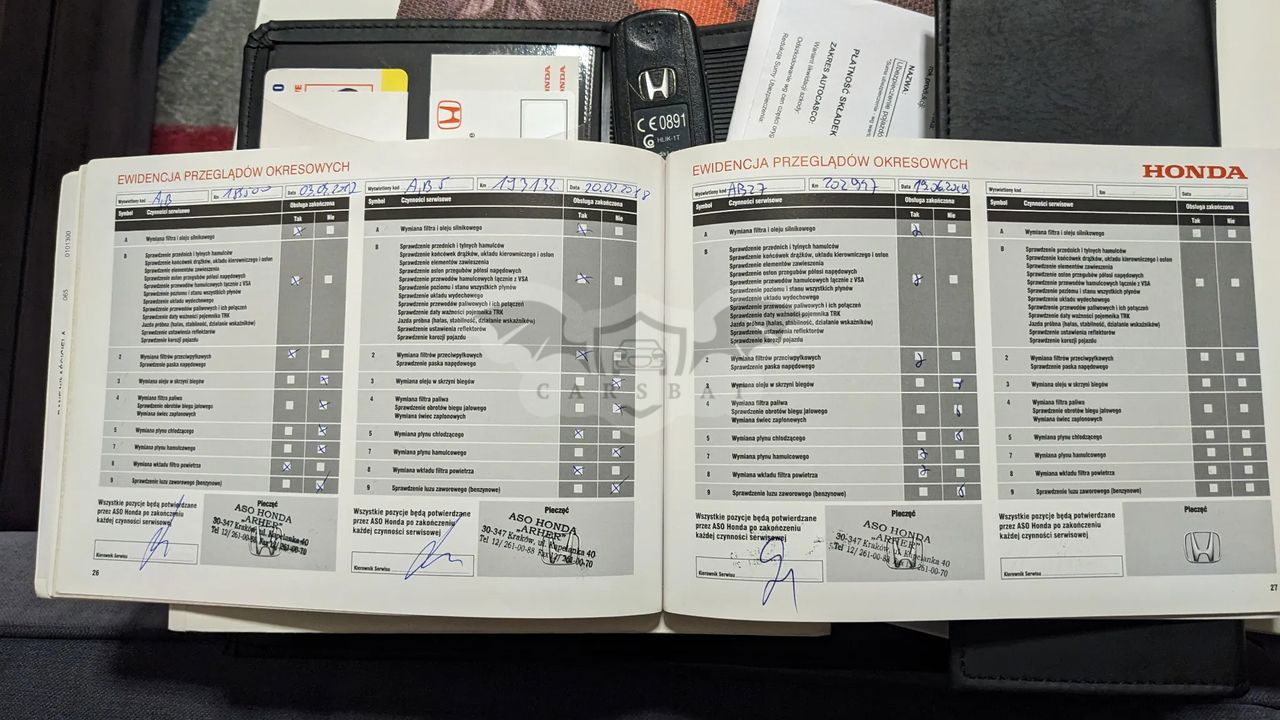 HONDA
HONDA
CE0891
HLIK-1T
NAZWA:
PŁATNOŚĆ SKŁADEK
ZAKRES AUTOCASCO:
Wariant likwidacji szkody:
Redukcja Sumy Ubezpieczenia:
0101300
EWIDENCJA PRZEGLĄDÓW OKRESOWYCH
Wyświetlony kod A,B Km Data
Symbol Czynności serwisowe Obsługa zakończona
Tak Nie
A Wymiana filtra i oleju silnikowego
B Sprawdzenie przednich i tylnych hamulców
Sprawdzenie końcówek drążków, układu kierowniczego i osłon
Sprawdzenie elementów zawieszenia
Sprawdzenie osłon przegubów półosi napędowych
Sprawdzenie przewodów hamulcowych łącznie z VSA
Sprawdzenie poziomu i stanu wszystkich płynów
Sprawdzenie układu wydechowego
Sprawdzenie przewodów paliwowych i ich połączeń
Sprawdzenie daty ważności pojemnika TRK
Jazda próbna (hałas, stabilność, działanie wskaźników)
Sprawdzenie ustawienia reflektorów
Sprawdzenie korozji pojazdu
2 Wymiana filtrów przeciwpyłkowych
Sprawdzenie paska napędowego
3 Wymiana oleju w skrzyni biegów
4 Wymiana filtra paliwa
Sprawdzenie obrotów biegu jałowego
Wymiana świec zapłonowych
5 Wymiana płynu chłodzącego
7 Wymiana płynu hamulcowego
8 Wymiana wkładu filtra powietrza
9 Sprawdzenie luzu zaworowego (benzynowe)
Wszystkie pozycje będą potwierdzane
przez ASO Honda po zakończeniu
każdej czynności serwisowej
Kierownik Serwisu
Pieczęć
ASO HONDA
"ARHER"
30-347 Kraków, ul. Kapelanka 40
Tel 12/ 261-00-88 Fax 12/ 261-00-70
26
Wyświetlony kod A,B 5 Km 193132 Data 20.02.2018
Symbol Czynności serwisowe Obsługa zakończona
Tak Nie
A Wymiana filtra i oleju silnikowego
B Sprawdzenie przednich i tylnych hamulców
Sprawdzenie końcówek drążków, układu kierowniczego i osłon
Sprawdzenie elementów zawieszenia
Sprawdzenie osłon przegubów półosi napędowych
Sprawdzenie przewodów hamulcowych łącznie z VSA
Sprawdzenie poziomu i stanu wszystkich płynów
Sprawdzenie układu wydechowego
Sprawdzenie przewodów paliwowych i ich połączeń
Sprawdzenie daty ważności pojemnika TRK
Jazda próbna (hałas, stabilność, działanie wskaźników)
Sprawdzenie ustawienia reflektorów
Sprawdzenie korozji pojazdu
2 Wymiana filtrów przeciwpyłkowych
Sprawdzenie paska napędowego
3 Wymiana oleju w skrzyni biegów
4 Wymiana filtra paliwa
Sprawdzenie obrotów biegu jałowego
Wymiana świec zapłonowych
5 Wymiana płynu chłodzącego
7 Wymiana płynu hamulcowego
8 Wymiana wkładu filtra powietrza
9 Sprawdzenie luzu zaworowego (benzynowe)
Wszystkie pozycje będą potwierdzane
przez ASO Honda po zakończeniu
każdej czynności serwisowej
Kierownik Serwisu
Pieczęć
ASO HONDA
"ARHER"
30-347 Kraków, ul. Kapelanka 40
Tel 12/ 261-00-88 Fax 12/ 261-00-70
EWIDENCJA PRZEGLĄDÓW OKRESOWYCH
HONDA
Wyświetlony kod AB27 Km 202947 Data 19.06.2019
Symbol Czynności serwisowe Obsługa zakończona
Tak Nie
A Wymiana filtra i oleju silnikowego
B Sprawdzenie przednich i tylnych hamulców
Sprawdzenie końcówek drążków, układu kierowniczego i osłon
Sprawdzenie elementów zawieszenia
Sprawdzenie osłon przegubów półosi napędowych
Sprawdzenie przewodów hamulcowych łącznie z VSA
Sprawdzenie poziomu i stanu wszystkich płynów
Sprawdzenie układu wydechowego
Sprawdzenie przewodów paliwowych i ich połączeń
Sprawdzenie daty ważności pojemnika TRK
Jazda próbna (hałas, stabilność, działanie wskaźników)
Sprawdzenie ustawienia reflektorów
Sprawdzenie korozji pojazdu
2 Wymiana filtrów przeciwpyłkowych
Sprawdzenie paska napędowego
3 Wymiana oleju w skrzyni biegów
4 Wymiana filtra paliwa
Sprawdzenie obrotów biegu jałowego
Wymiana świec zapłonowych
5 Wymiana płynu chłodzącego
7 Wymiana płynu hamulcowego
8 Wymiana wkładu filtra powietrza
9 Sprawdzenie luzu zaworowego (benzynowe)
Wszystkie pozycje będą potwierdzane
przez ASO Honda po zakończeniu
każdej czynności serwisowej
Kierownik Serwisu
Pieczęć
ASO HONDA
"ARHER"
30-347 Kraków, ul. Kapelanka 40
Tel 12/ 261-00-88 Fax 12/ 261-00-70
Wyświetlony kod Km Data
Symbol Czynności serwisowe Obsługa zakończona
Tak Nie
A Wymiana filtra i oleju silnikowego
B Sprawdzenie przednich i tylnych hamulców
Sprawdzenie końcówek drążków, układu kierowniczego i osłon
Sprawdzenie elementów zawieszenia
Sprawdzenie osłon przegubów półosi napędowych
Sprawdzenie przewodów hamulcowych łącznie z VSA
Sprawdzenie poziomu i stanu wszystkich płynów
Sprawdzenie układu wydechowego
Sprawdzenie przewodów paliwowych i ich połączeń
Sprawdzenie daty ważności pojemnika TRK
Jazda próbna (hałas, stabilność, działanie wskaźników)
Sprawdzenie ustawienia reflektorów
Sprawdzenie korozji pojazdu
2 Wymiana filtrów przeciwpyłkowych
Sprawdzenie paska napędowego
3 Wymiana oleju w skrzyni biegów
4 Wymiana filtra paliwa
Sprawdzenie obrotów biegu jałowego
Wymiana świec zapłonowych
5 Wymiana płynu chłodzącego
7 Wymiana płynu hamulcowego
8 Wymiana wkładu filtra powietrza
9 Sprawdzenie luzu zaworowego (benzynowe)
Wszystkie pozycje będą potwierdzane
przez ASO Honda po zakończeniu
każdej czynności serwisowej
Kierownik Serwisu
Pieczęć
27
CARSBAT